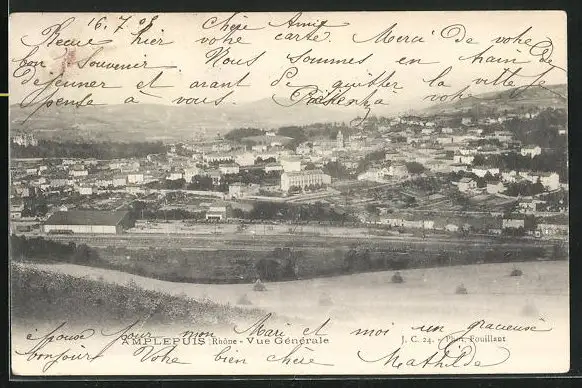 16.7.05 Chère Amie
Recue hier votre carte. Merci De votre
bon Souvenir Nous sommes en train De
Dejeuner et avant De quitter la ville Je
pense a vous.
épouse pour mon Mari et moi un gracieuse
AMPLEPUIS (Rhône) - Vue Générale
J. C. 24. - Phot. Fouillant
bonjour Votre bien chère Mathilde